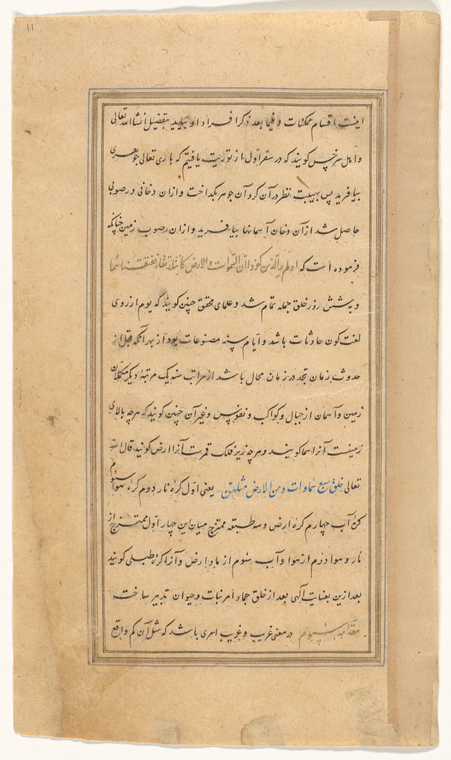 ۱۱
اینست اقسام ممکنات و فیما بعد ذکر افراد او بیاید بتفصیل انشاالله تعالی
و اهل سرخس کویند که در سفر اول از توریت یافتیم که باری تعالی جوهری
بیافرید پس بهیبت نظر در آن کرد آن جوهر بکداخت و ازان دخانی و رطوبی
حاصل شد ازان دخان آسمانها بیافرید و ازان رطوب زمین چنانکه
فرموده است که اولم یر الذین کفروا ان السموات والارض کانتا رتقا ففتقناهما
و بشش روز خلق جمله تمام شد و علمای محقق چنین کویند که یوم از روی
لغت کون حادثات باشد و ایام سته مصنوعات بود از بهر آنکه قبل از
حدوث زمان تجدد زمان محال باشد از مراتب سنو یک مرتبهٔ دیکر
زمین و آسمان از جبال و کواکب و نفوس و غیر آن چنین کویند که هرچه بالای
زمینست آنرا سما کویند و هرچه زیر فلک قمرست آنرا ارض کویند قال الله
تعالی خلق سبع سماوات ومن الارض مثلهن یعنی اول کره نار دوم کره هوا سوم
کرهٔ آب چهارم کرهٔ ارض و سه طبقه ممتزج میان این چهار اول ممتزج از
نار و هوا دوم از هوا و آب سوم از ما و ارض و آنرا کره طینی کویند
بعد ازین بعنایت الهی بعد از خلق جماد امر نبات و حیوان تدبیر ساخت
مقدمه سیوم در معنی غریب و غریب امری باشد که مثل آن کم واقع